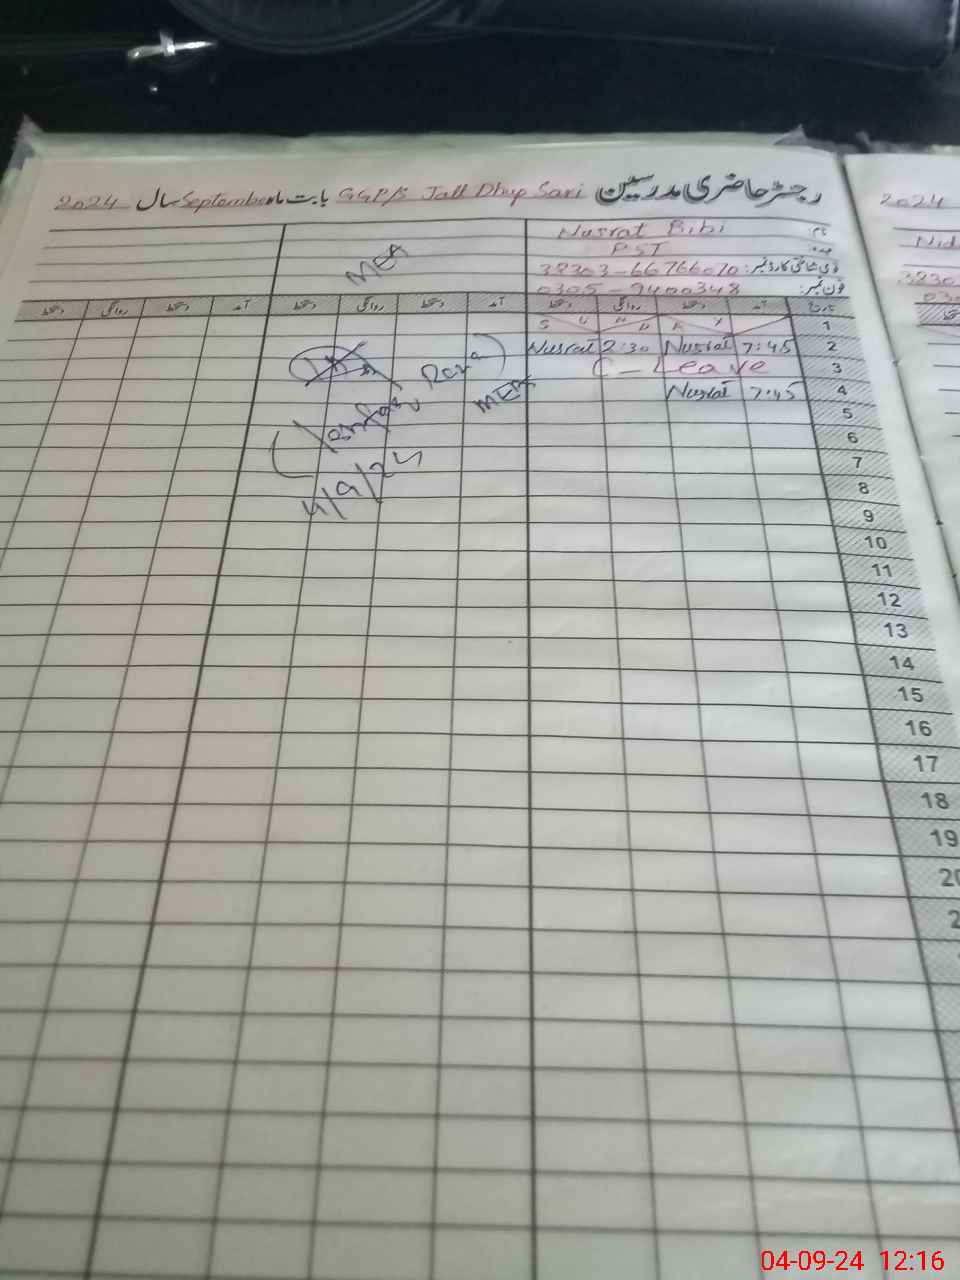 رجسٹر حاضری مدرسین GGP/S Jatt Dhup Sari بابت ماہ September سال 2024
2024
نام: Nusrat Bibi
عہدہ: PST
MEA
قومی شناختی کارڈ نمبر: 38303-66766070
فون نمبر: 0305-9400348
تاریخ آمد دستخط روانگی دستخط آمد دستخط روانگی دستخط آمد دستخط روانگی دستخط
1 S U N D A Y
2 7:45 Nusrat 2:30 Nusrat
3 C-Leave
4 7:45 Nusrat
MEA
4/9/24
5
6
7
8
9
10
11
12
13
14
15
16
17
18
19
04-09-24 12:16